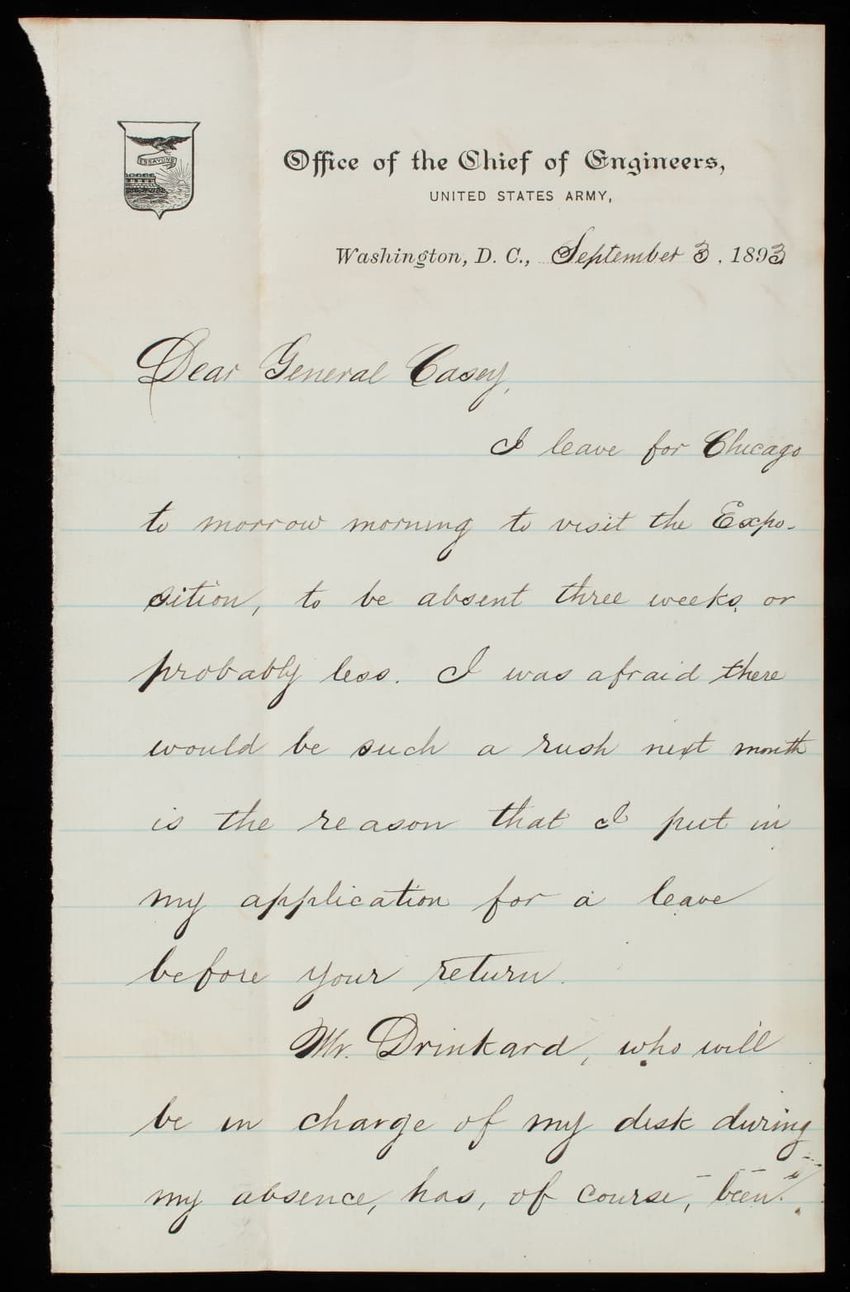 ESSAYONS
Office of the Chief of Engineers,
UNITED STATES ARMY,
Washington, D. C., September 3, 1893
Dear General Casey,
I leave for Chicago
to morrow morning to visit the Expo-
sition, to be absent three weeks or
probably less. I was afraid there
would be such a rush next month
is the reason that I put in
my application for a leave
before your return.
Mr. Drinkard, who will
be in charge of my desk during
my absence, has, of course, been